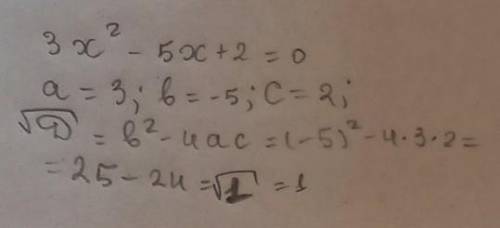 3x² - 5x + 2 = 0
a = 3; b = -5; c = 2;
√D = b² - 4ac = (-5)² - 4·3·2 =
= 25 - 24 = √1 = 1